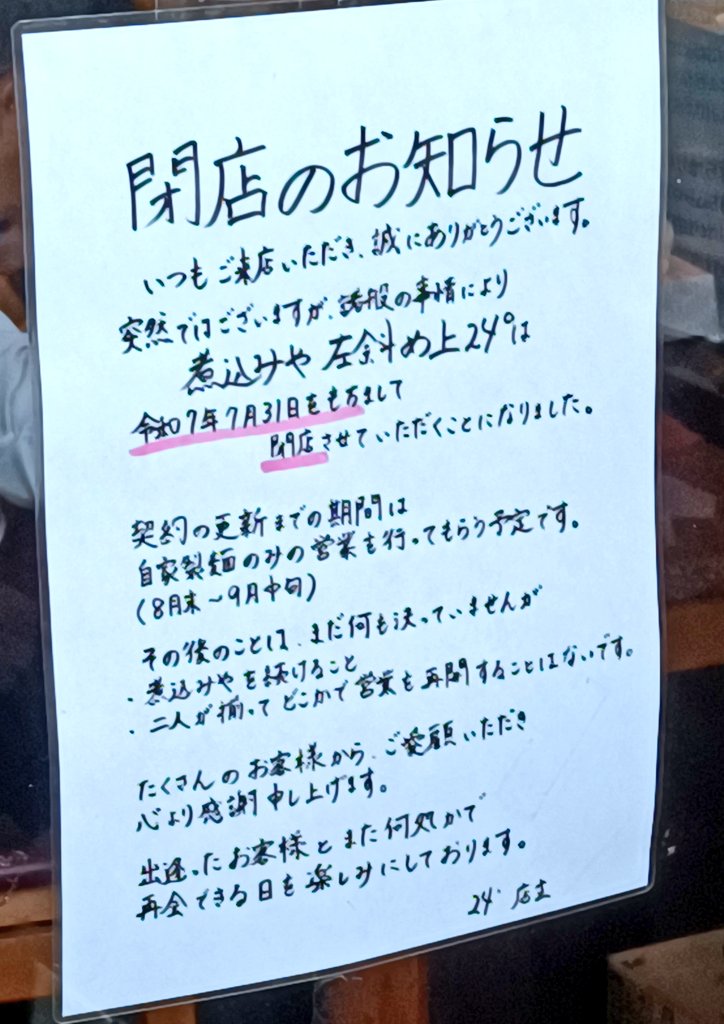 閉店のお知らせ
いつもご来店いただき、誠にありがとうございます。
突然ではございますが、諸般の事情により
煮込みや 左斜め上24°は
令和7年7月31日をもちまして
閉店させていただくことになりました。
契約の更新までの期間は
自家製麺のみの営業を行ってもらう予定です。
(8月末〜9月中旬)
その後のことは、まだ何も決っていませんが
・煮込みやを続けること
・二人が揃ってどこかで営業を再開することはないです。
たくさんのお客様から、ご愛顧いただき
心より感謝申し上げます。
出逢ったお客様とまた何処かで
再会できる日を楽しみにしております。
24° 店主